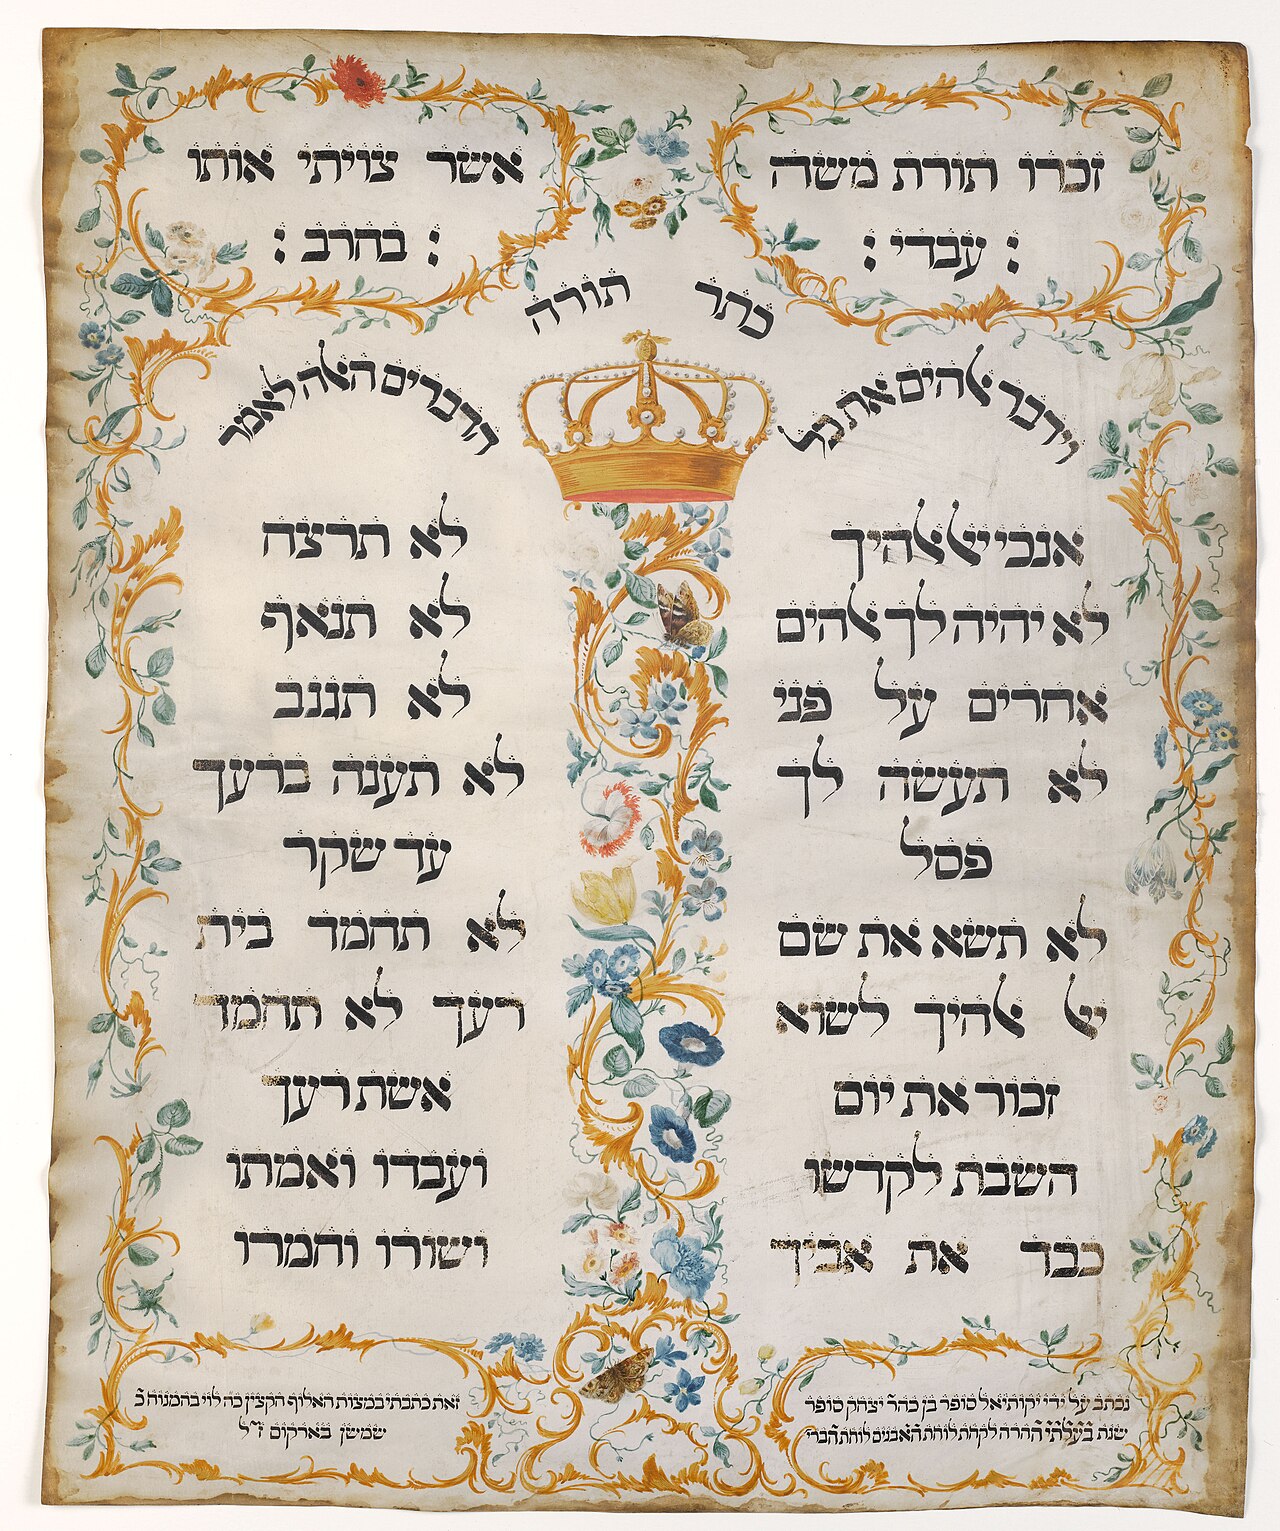 זכרו תורת משה
: עבדי :
אשר צויתי אותו
: בחרב :
כתר תורה
וידבר אלהים את כל
הדברים האלה לאמר
אנכי יאל אלהיך
לא יהיה לך אלהים
אחרים על פני
לא תעשה לך
פסל
לא תשא את שם
יאל אלהיך לשוא
זכור את יום
השבת לקדשו
כבד את אביך
לא תרצח
לא תנאף
לא תגנב
לא תענה ברעך
עד שקר
לא תחמד בית
רעך לא תחמד
אשת רעך
ועבדו ואמתו
ושורו וחמרו
נכתב על ידי יקותיאל סופר בן כהר יצחק סופר
שנת בעלתי ההרה לקחת לוחת האבנים לוחת הברי
זאת כתבתי במצות האלוף הקצין כה לוי בהמנוח כ
שמשן בארקום ז״ל